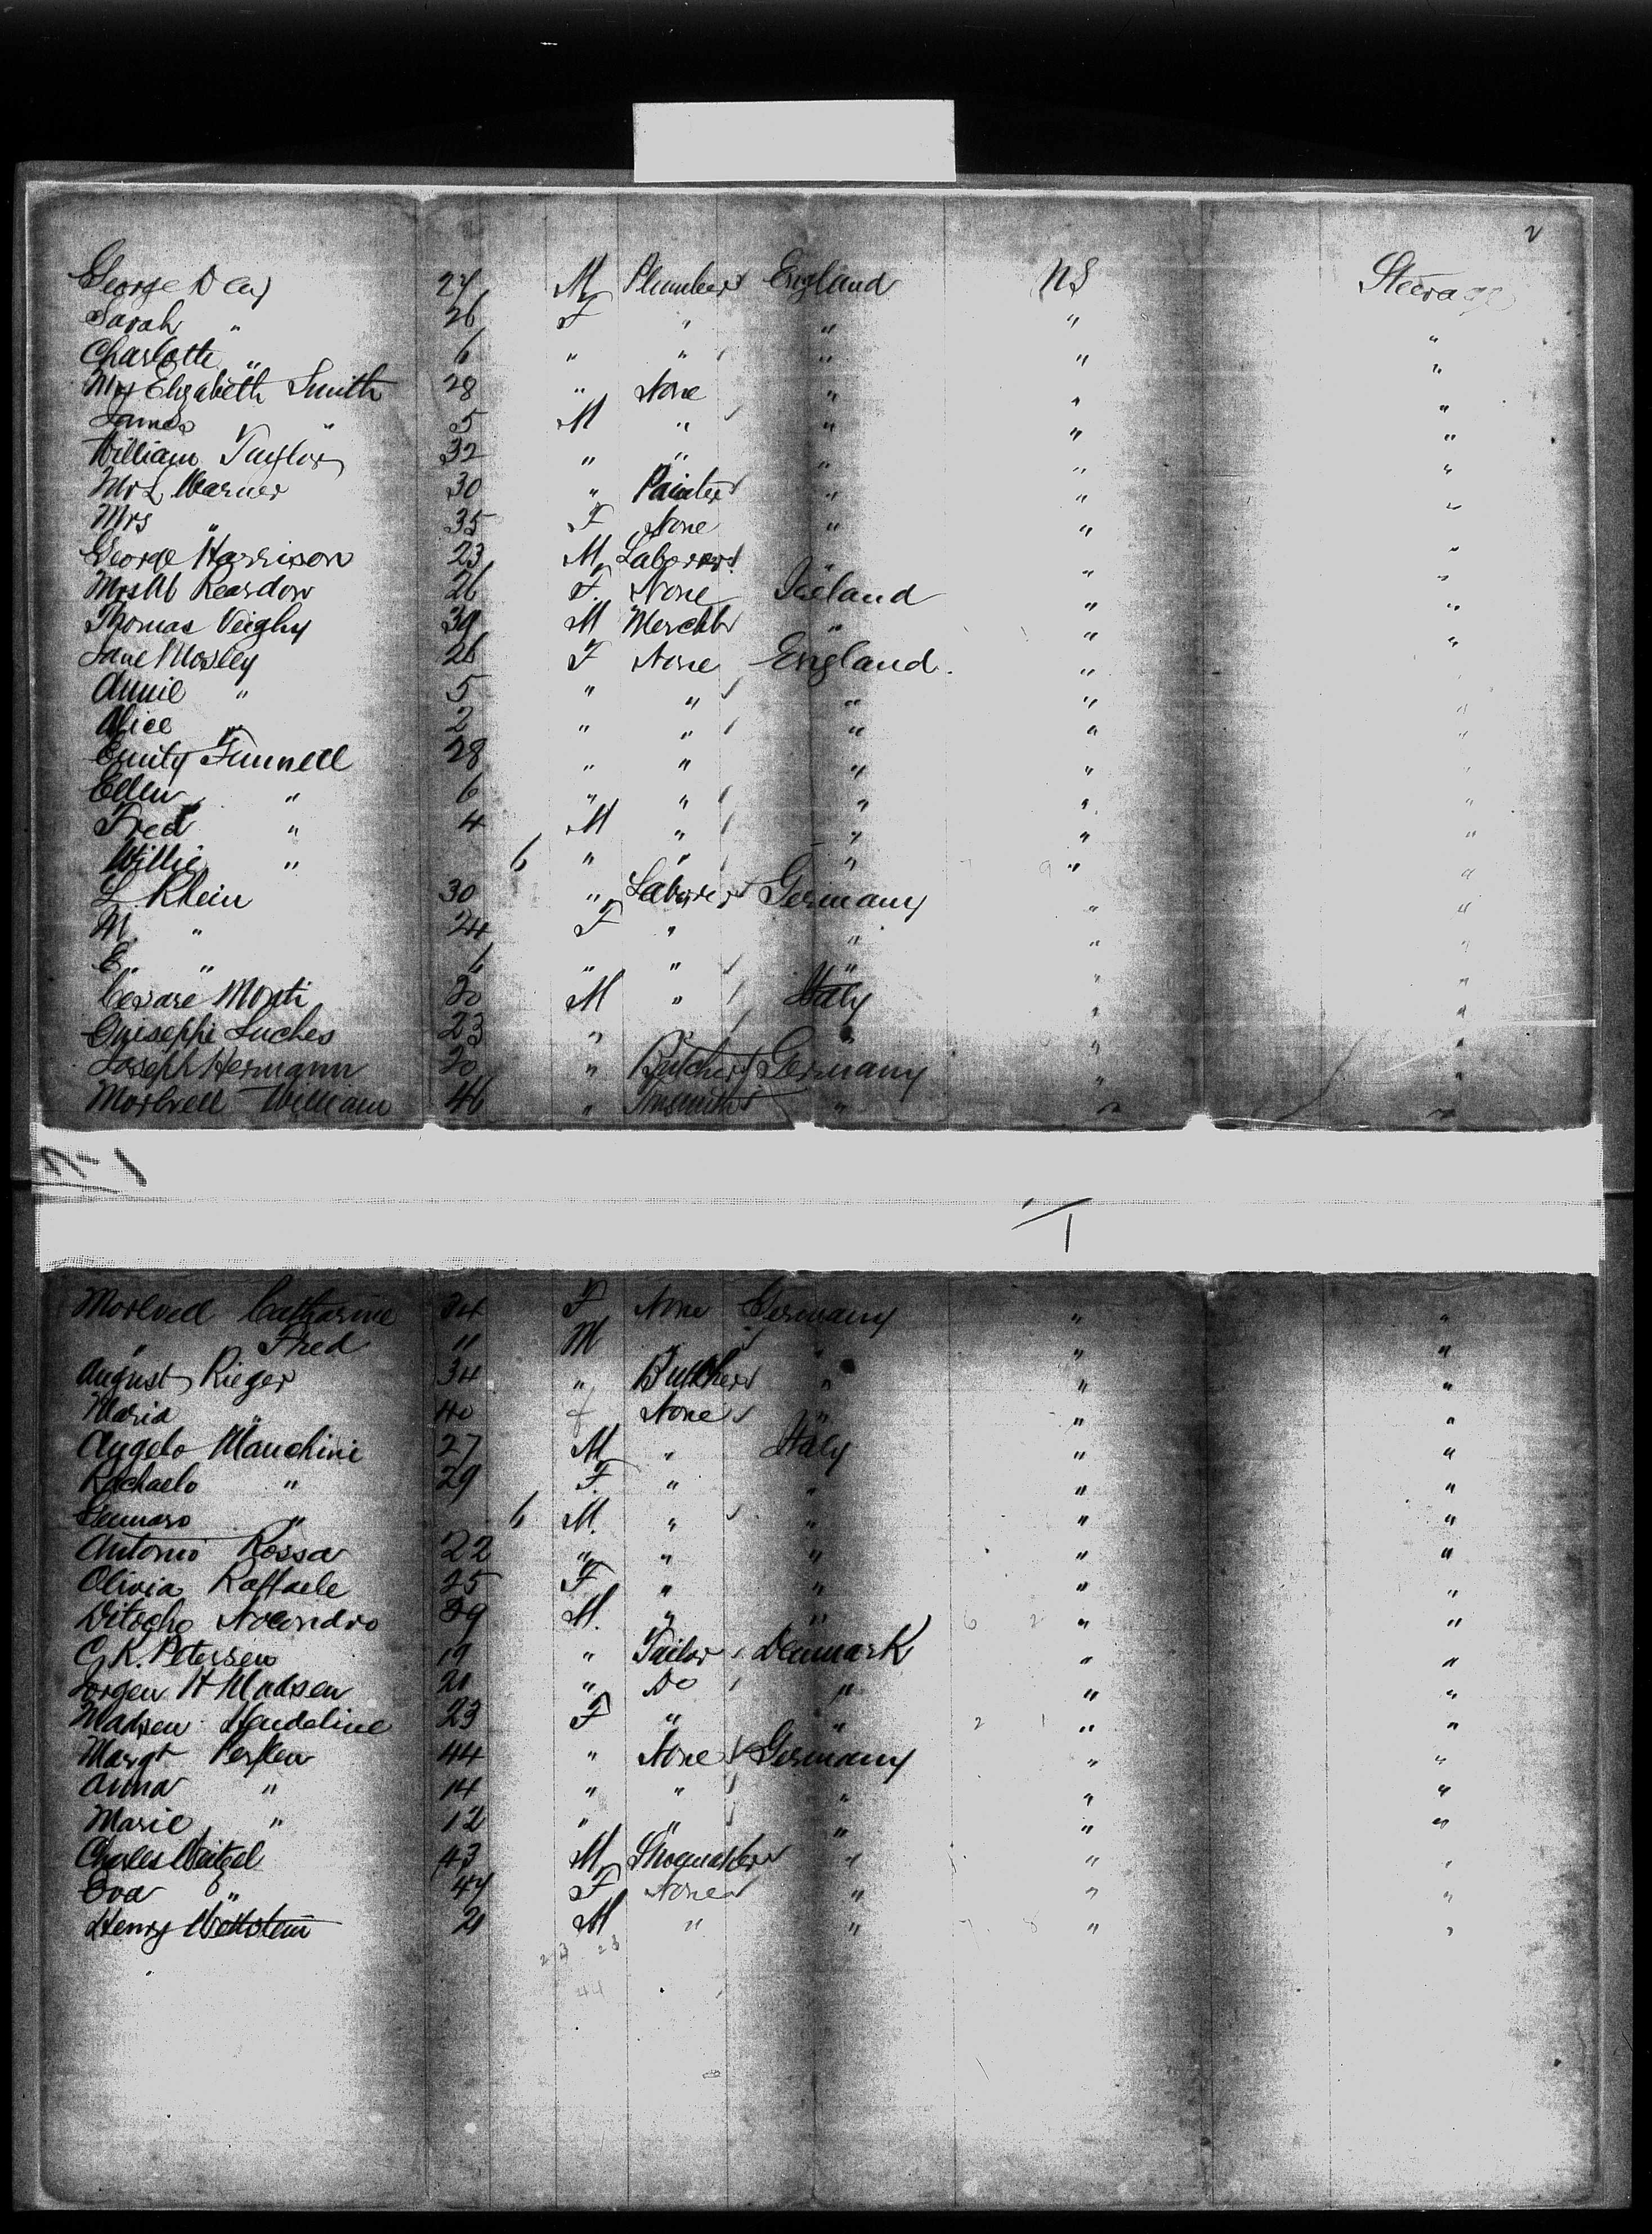 2
George Day 27 M Plumber England US Steerage
Sarah " 26 F " " " "
Charlotte " 6 " " " " "
Mrs Elizabeth Smith 28 " None " " "
James " 5 M " " " "
William Taylor 32 " " " " "
Mr L Warner 30 " Painter " " "
Mrs " 35 F None " " "
George Harrison 23 M Laborer " " "
Mrs M Reardon 26 F. None Ireland " "
Thomas Veighy 39 M Mercht " " "
Jane Mosley 26 F None England. " "
Annie " 5 " " " " "
Alice " 2 " " " " "
Emily Funnell 28 " " " " "
Ellen " 6 " " " " "
Fred " 4 M " " " "
Willie " 6 " " " " "
L Rhein 30 " Laborer Germany " "
M. " 24 F " " " "
E. " 6 " " " " "
Cesare Monti 20 M " Italy " "
Guiseppi Luches 23 " " " " "
Joseph Hermann 20 " Butcher Germany " "
Morlvell William 46 " Tinsmith " " "
Morlvell Catharine 34 F None Germany " "
" Fred 11 M " " " "
August Rieger 34 " Butcher " " "
Maria " 40 f None " " "
Angelo Manchini 27 M " Italy " "
Rachaelo " 29 F. " " " "
Gennaro " 6 M. " " " "
Antonio Rossa 22 " " " " "
Olivia Raffaele 25 F " " " "
Ditocho Nocondro 39 M. " " " "
C, K. Petersen 19 " Tailor Denmark " "
Jorgen H Madsen 21 " Do " " "
Madsen Hendeline 23 F " " " "
Margt Perken 44 " None Germany " "
Anna " 14 " " " " "
Marie " 12 " " " " "
Charles Weitzel 43 M Shoemaker " " "
Eva " 47 F None " " "
Henry Wettstein 21 M " " " "
23 23
44